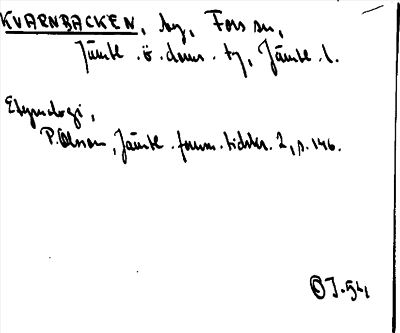 KVARNBACKEN, by, Fors sn,
Jämtl. ö. doms. tg, Jämtl. l.
Etymologi,
P. Olsson, Jämtl. fornm. tidskr. 2, s. 146.